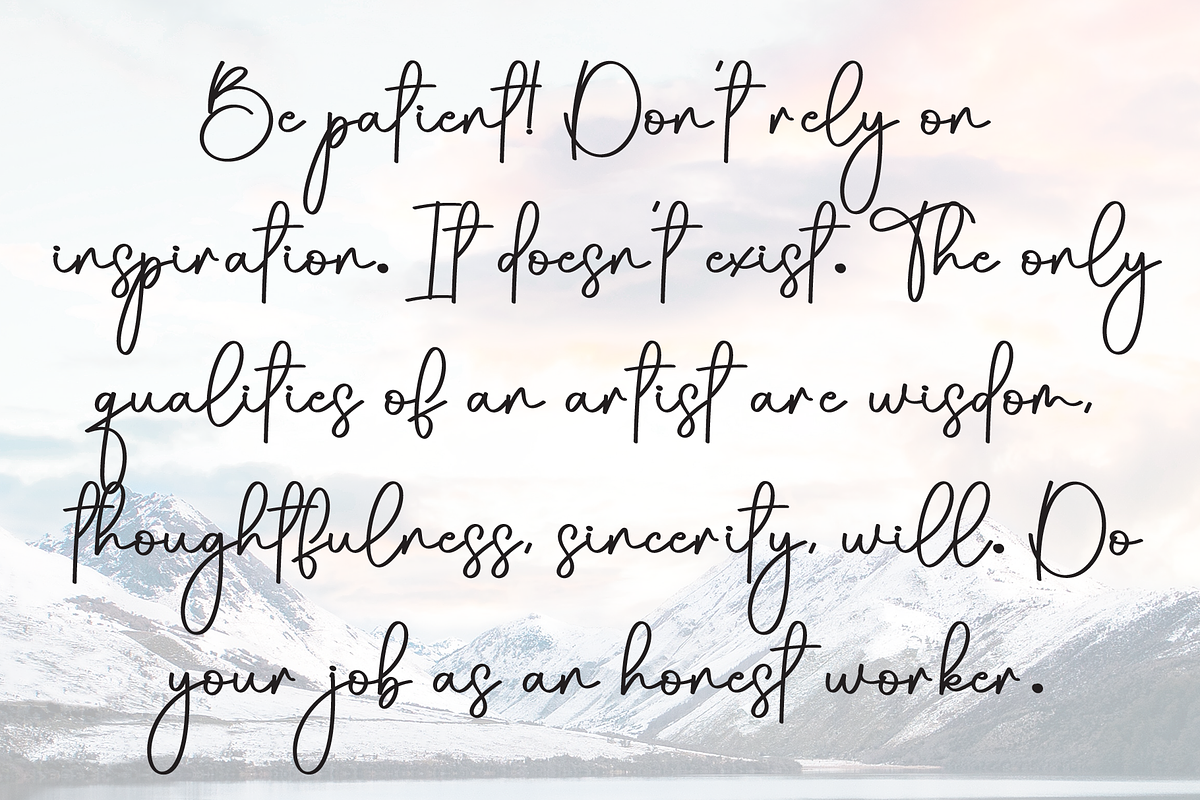 Be patient! Don't rely on
inspiration. It doesn't exist. The only
qualities of an artist are wisdom,
thoughtfulness, sincerity, will. Do
your job as an honest worker.